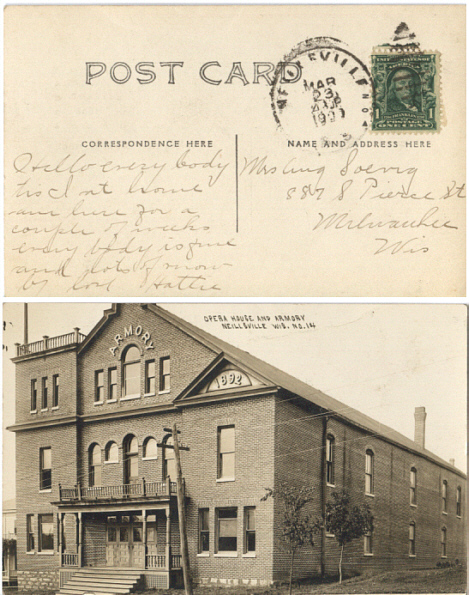 POST CARD
NEILLSVILLE
MAR
23
ONE CENT
1
CORRESPONDENCE HERE
NAME AND ADDRESS HERE
Hello every body
his I at home
am here for a
couple of weeks
every body is fine
and lots of snow
by love Hattie
Mrs Aug Soevig
887 8 Pierce St
Milwaukee
Wis
OPERA HOUSE AND ARMORY
NEILLSVILLE WIS. NO. 14
ARMORY
1892